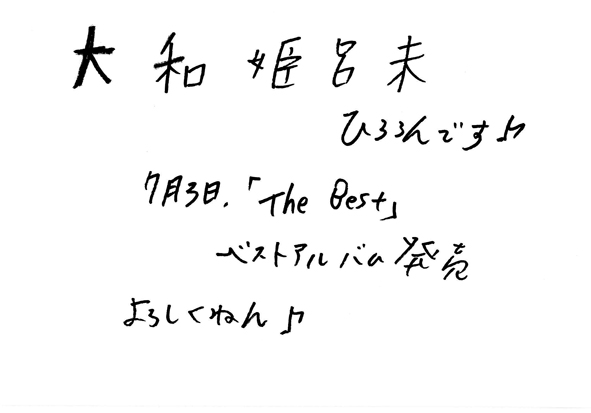 大和姫呂未
ひろろんです♪
7月3日、「The Best」
ベストアルバム発売
よろしくねん♪